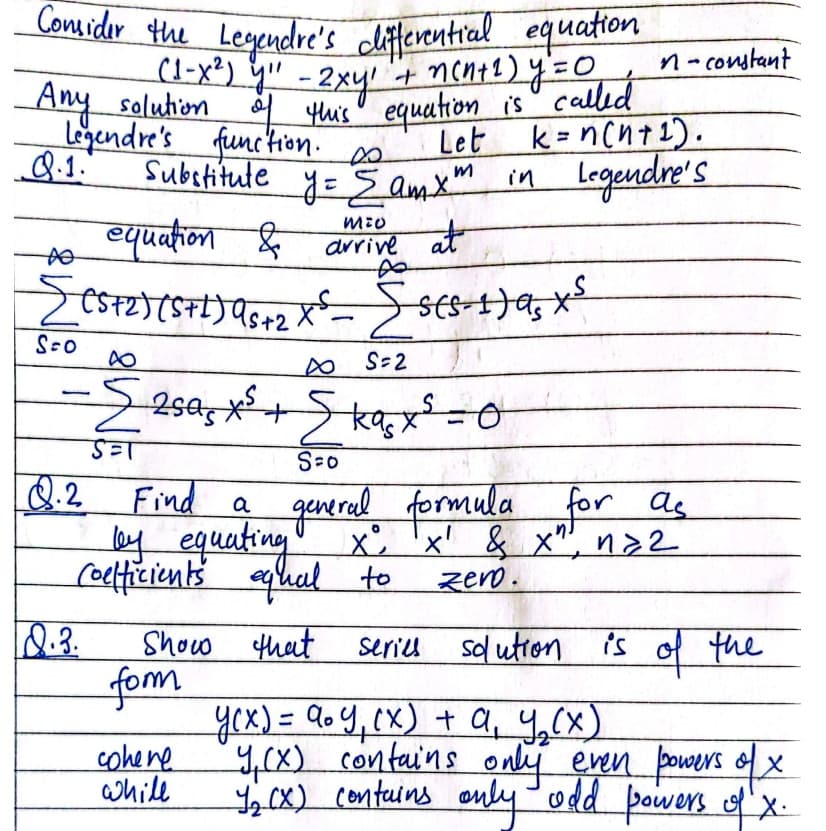 Consider the Legendre's differential equation
(1-x²) y'' - 2xy' + n(n+1) y = 0 , n - constant
Any solution of this equation is called
Legendre's function. Let k = n(n+1).
Q.1. Substitute y = ∑_{m=0}^{∞} a_m x^m in Legendre's
equation & arrive at
∑_{s=0}^{∞} (s+2)(s+1) a_{s+2} x^s - ∑_{s=2}^{∞} s(s-1) a_s x^s
- ∑_{s=1}^{∞} 2s a_s x^s + ∑_{s=0}^{∞} k a_s x^s = 0
Q.2 Find a general formula for a_s
by equating x⁰, x¹ & xⁿ, n ≥ 2
coefficients equal to zero.
Q.3. Show that series solution is of the
form
y(x) = a₀ y₁(x) + a₁ y₂(x)
where y₁(x) contains only even powers of x
while y₂(x) contains only odd powers of x.